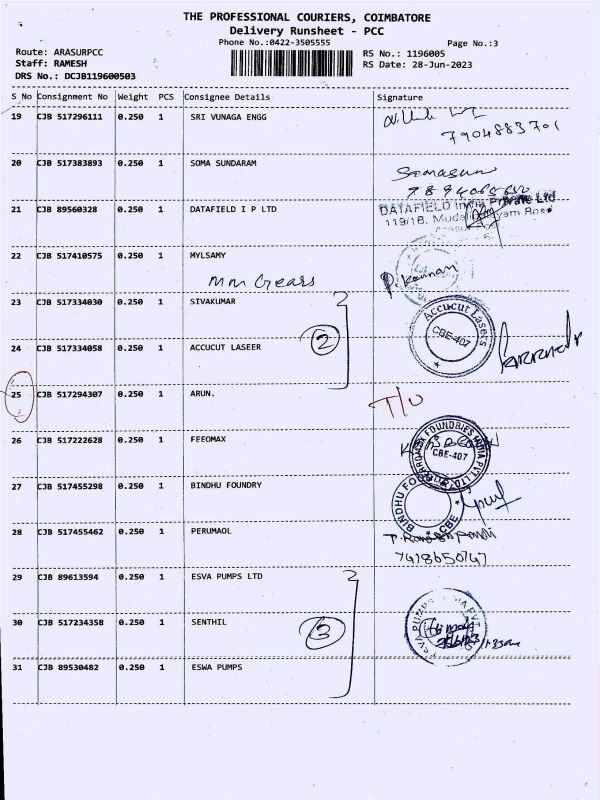 THE PROFESSIONAL COURIERS, COIMBATORE
Delivery Runsheet - PCC
Phone No.:0422-3505555 Page No.:3
Route: ARASURPCC RS No.: 1196005
Staff: RAMESH RS Date: 28-Jun-2023
DRS No.: DCJB119600503
S No Consignment No Weight PCS Consignee Details Signature
19 CJB 517296111 0.250 1 SRI VUNAGA ENGG
7904883701
20 CJB 517383893 0.250 1 SOMA SUNDARAM
Somasun
21 CJB 89560328 0.250 1 DATAFIELD I P LTD DATAFIELD India Private Ltd
119/1B,
22 CJB 517410575 0.250 1 MYLSAMY
mm Gears P. Kannan
23 CJB 517334030 0.250 1 SIVAKUMAR
2 Accucut Lasers
CBE-407
24 CJB 517334058 0.250 1 ACCUCUT LASEER
25 CJB 517294307 0.250 1 ARUN. T/O
26 CJB 517222628 0.250 1 FEEOMAX
FOUNDRIES INDIA PVT LTD
CBE-407
27 CJB 517455298 0.250 1 BINDHU FOUNDRY
BINDHU FO
CBE
28 CJB 517455462 0.250 1 PERUMAOL
7418650747
29 CJB 89613594 0.250 1 ESVA PUMPS LTD
30 CJB 517234358 0.250 1 SENTHIL
3
31 CJB 89530482 0.250 1 ESWA PUMPS